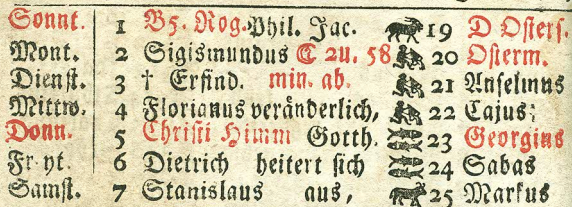 Sonnt. 1 B5. Rog. Phil. Jac. 19 D Osters.
Mont. 2 Sigismundus C 2u. 58 20 Osterm.
Dienst. 3 † Erfind. min. ab. 21 Anselmus
Mittw. 4 Florianus veränderlich, 22 Cajus:
Donn. 5 Christi Himm Gotth. 23 Georgius
Freyt. 6 Dietrich heitert sich 24 Sabas
Samst. 7 Stanislaus aus, 25 Markus